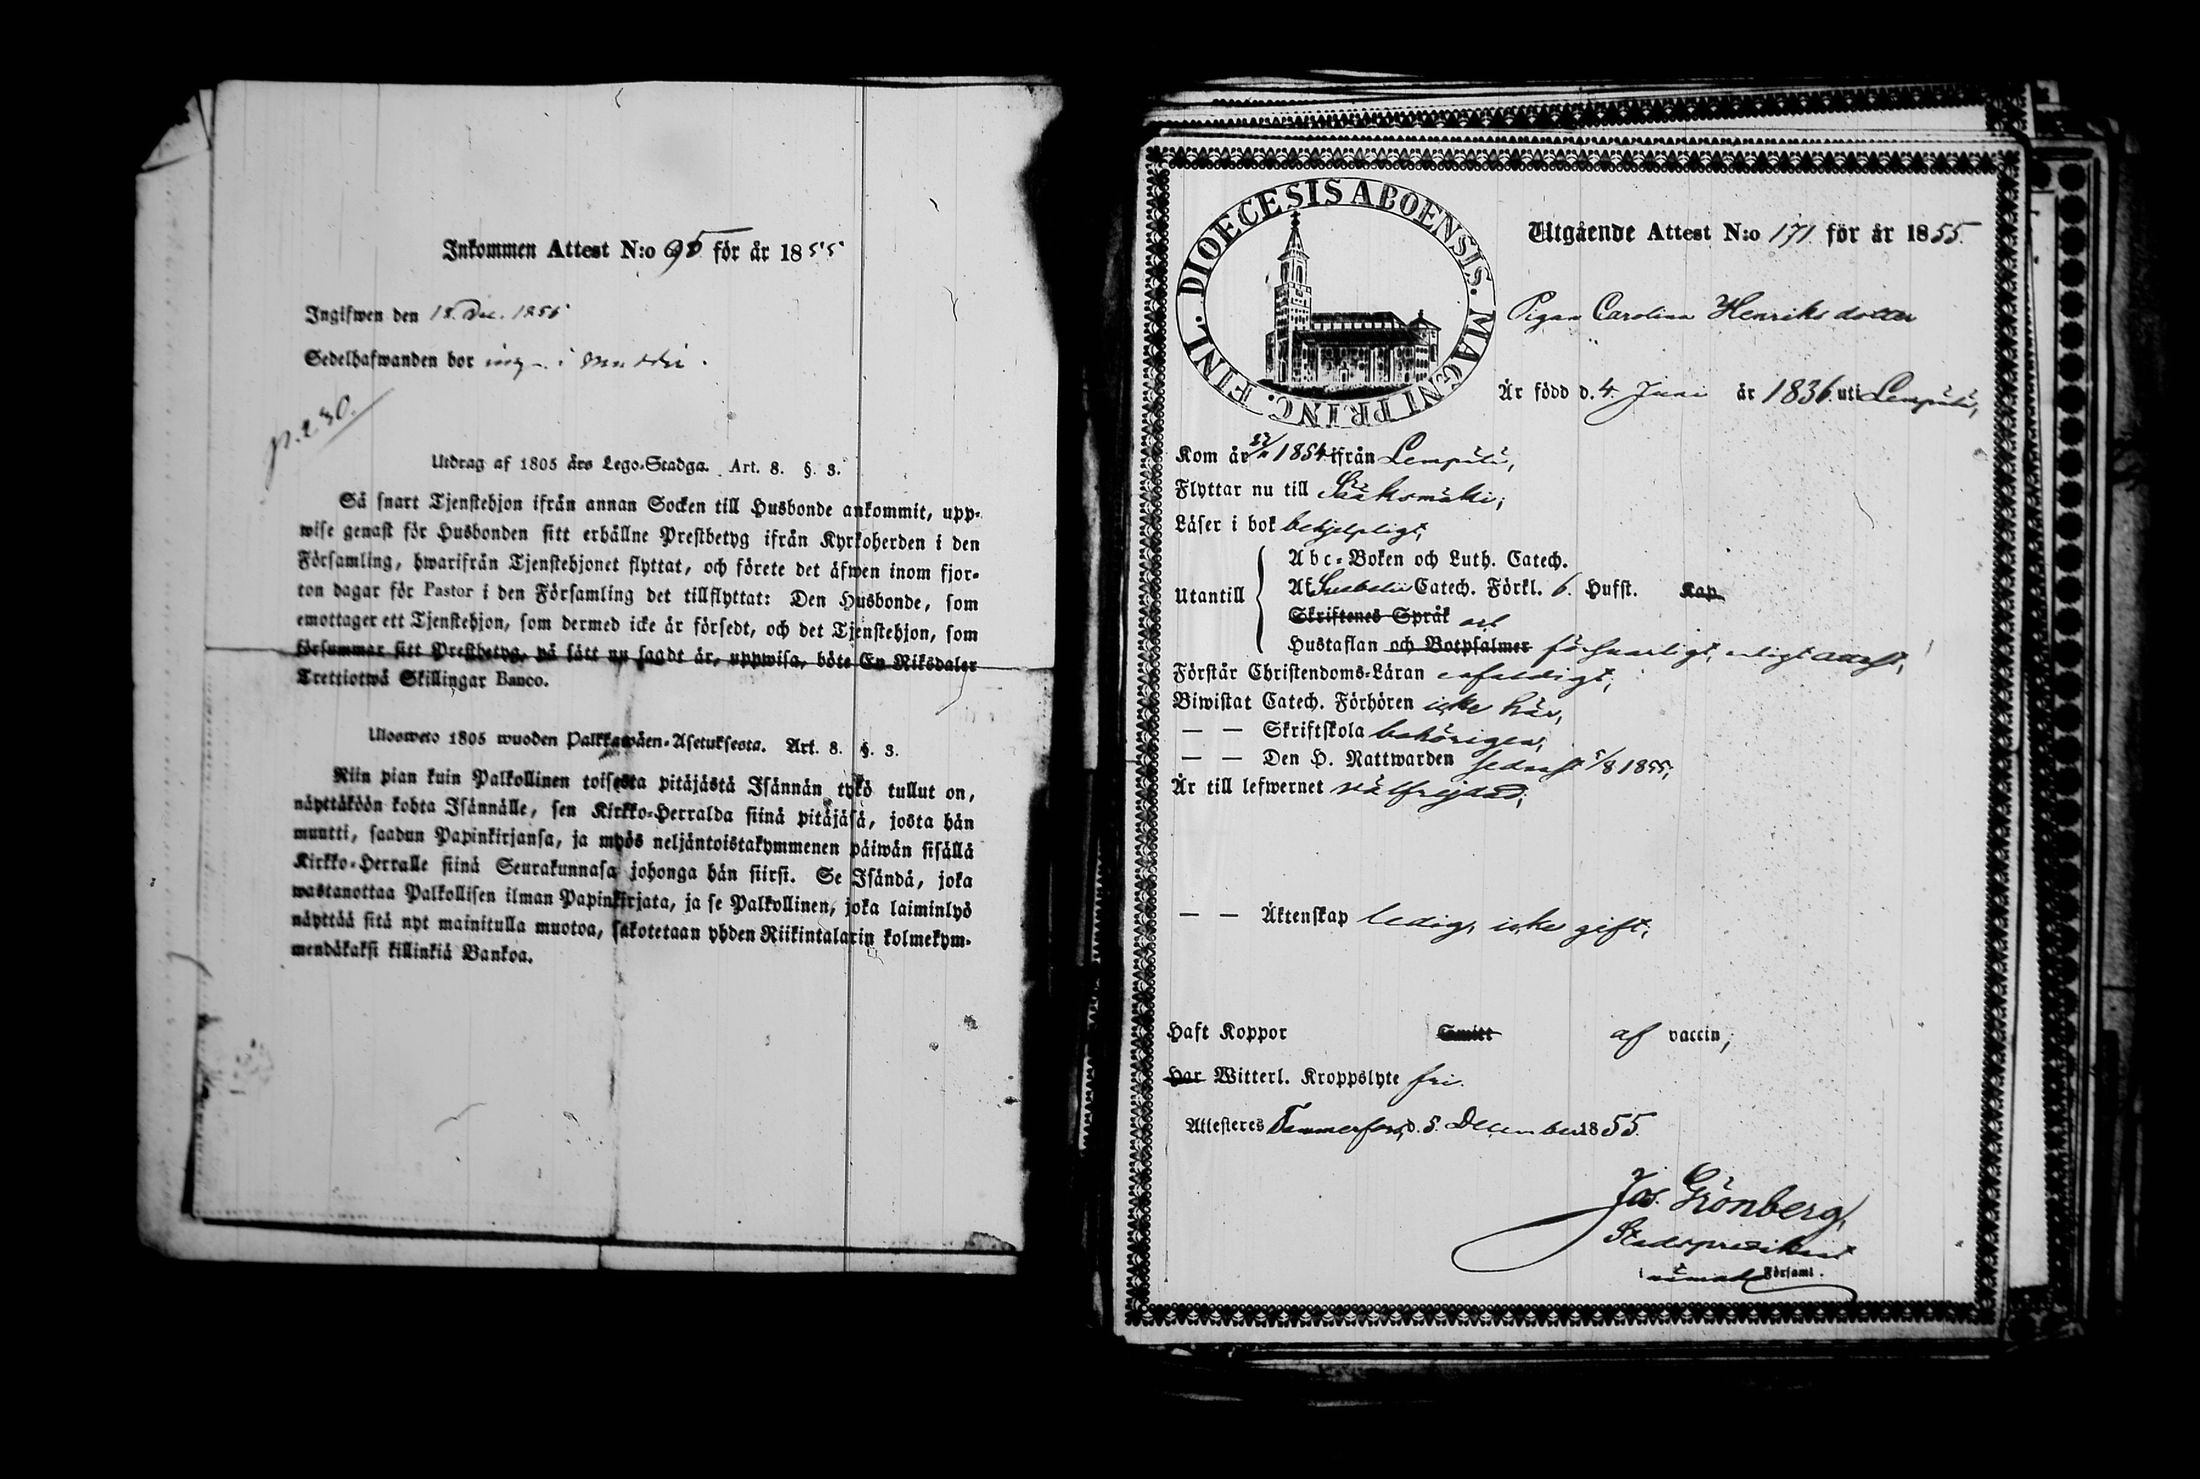 Inkommen Attest N:o 95 för år 1855
Ingifwen den 18. Dec. 1855
Sedelhafwanden bor i
p. 230.
Utdrag af 1805 års Lego-Stadga. Art. 8. §. 3.
Så snart Tjenstehjon ifrån annan Socken till Husbonde ankommit, upp-
wise genast för Husbonden sitt erhållne Prestbetyg ifrån Kyrkoherden i den
Församling, hwarifrån Tjenstehjonet flyttat, och förete det äfwen inom fjor-
ton dagar för Pastor i den Församling det tillflyttat: Den Husbonde, som
emottager ett Tjenstehjon, som dermed icke är försedt, och det Tjenstehjon, som
försummar sitt Prestbetyg, på sätt nu sagdt är, uppwisa, böte En Riksdaler
Trettiotwå Skillingar Banco.
Ulosweto 1805 wuoden Palkkawäen-Asetuksesta. Art. 8. §. 3.
Niin pian kuin Palkollinen toisesta pitäjästä Isännän tykö tullut on,
näyttäköön kohta Isännälle, sen Kirkko-Herralda siinä pitäjäsä, josta hän
muutti, saadun Papinkirjansa, ja myös neljäntoistakymmenen päiwän sisällä
Kirkko-Herralle siinä Seurakunnasa johonga hän siirsi. Se Isändä, joka
wastanottaa Palkollisen ilman Papinkirjata, ja se Palkollinen, joka laiminlyö
näyttää sitä nyt mainitulla muotoa, sakotetaan yhden Riikintalarin kolmekym-
mendäkaksi killinkiä Bankoa.
DIOECESIS ABOENSIS. MAGNI PRINC. FINL.
Utgående Attest N:o 171 för år 1855.
Pigan Carolina Henriksdotter
Är född d. 4. Juni år 1836. uti Lempälä,
Kom år 1854 ifrån Lempälä,
Flyttar nu till Sääksmäki,
Läser i bok behjelpligt,
Utantill
Abc-Boken och Luth. Catech.
Af Svebelii Catech. Förkl. 6. Hufst. Kap.
Skriftenes Språk och
Hustaflan och Botpsalmer försvarligt, enligt attest,
Förstår Christendoms-Läran enfaldigt,
Biwistat Catech. Förhören icke här,
— — Skriftskola behörigen,
— — Den H. Nattwarden sednast 5/8 1855,
Är till lefwernet välfrejdad,
— — Äktenskap ledig, icke gift,
Haft Koppor Smitt af vaccin,
Har Witterl. Kroppslyte fri.
Attesteres Tammerfors, d. 5. December 1855.
Jos. Grönberg,
Stadspredikant
i nämnde Församl.